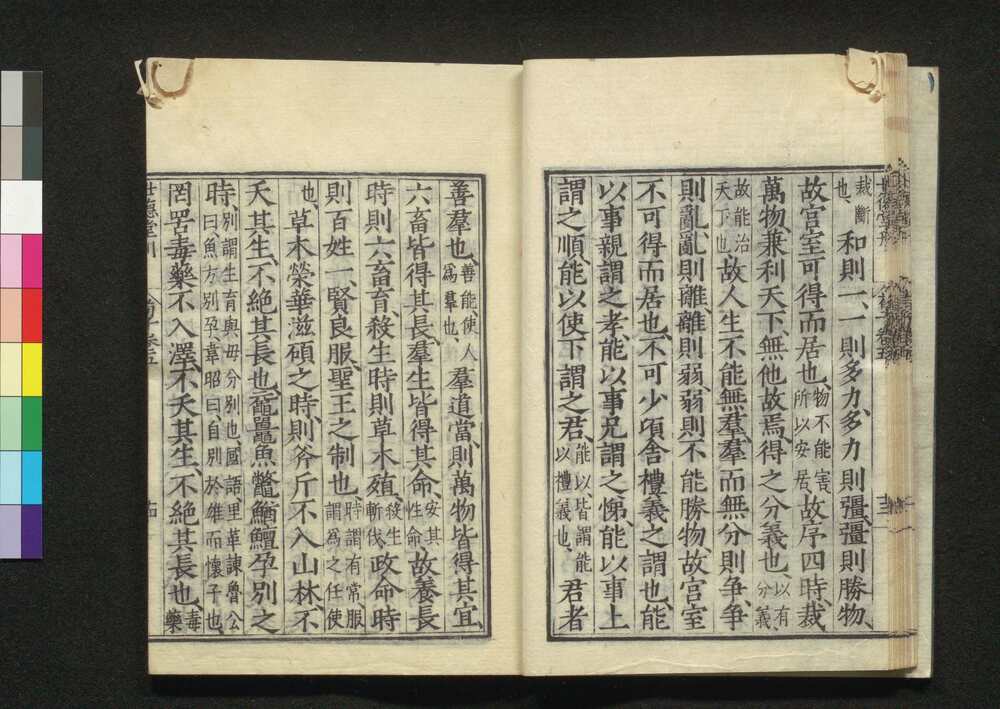 裁斷也、和則一、一則多力、多力則彊、彊則勝物、
故宮室可得而居也、物不能害、所以安居、故序四時、裁
萬物、兼利天下、無他故焉、得之分義也、以有分義、
故能治天下也、故人生不能無羣、羣而無分則爭、爭
則亂、亂則離、離則弱、弱則不能勝物、故宮室
不可得而居也、不可少頃舍禮義之謂也、能
以事親謂之孝、能以事兄謂之悌、能以事上
謂之順、能以使下謂之君、能以、皆謂能以禮義也、君者
善羣也、善能使人爲羣也、羣道當、則萬物皆得其宜、
六畜皆得其長、羣生皆得其命、安其性命、故養長
時則六畜育、殺生時則草木殖、殺生斬伐、政命時
則百姓一、賢良服、聖王之制也、時謂有常、服謂爲之任使
也、草木榮華滋碩之時、則斧斤不入山林、不
夭其生、不絕其長也、黿鼉魚鱉鰌鱣孕別之
時、別謂生育與母分別也、國語里革諫魯公曰魚方別孕、韋昭曰自別於雄而懷子也、
罔罟毒藥不入澤、不夭其生、不絕其長也、毒藥
世德堂刊